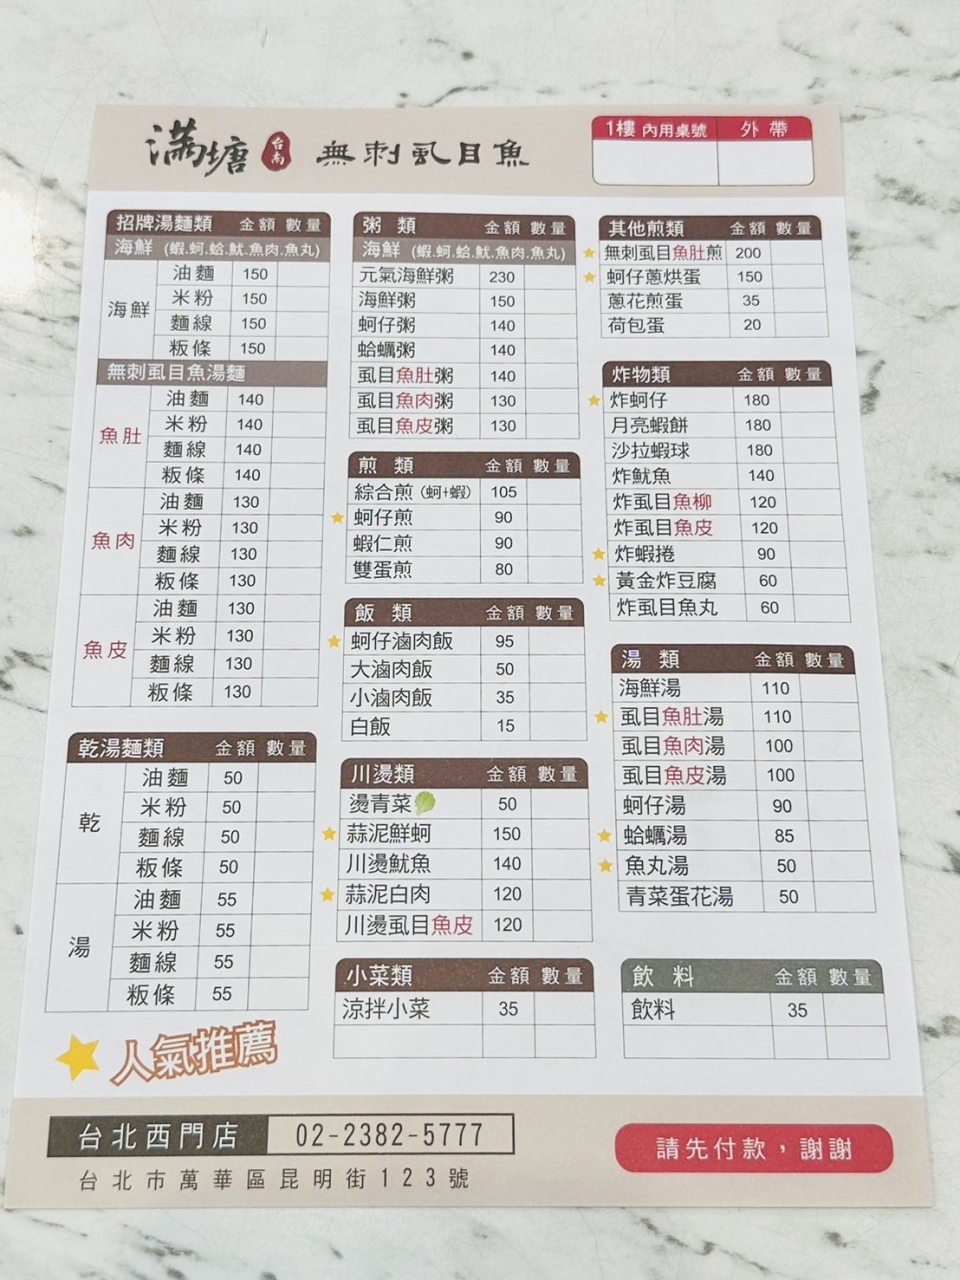 滿塘 台南 無刺虱目魚
1樓 內用桌號 外帶
招牌湯麵類 金額 數量
海鮮 (蝦.蚵.蛤.魷.魚肉.魚丸)
海鮮
油麵 150
米粉 150
麵線 150
粄條 150
無刺虱目魚湯麵
魚肚
油麵 140
米粉 140
麵線 140
粄條 140
魚肉
油麵 130
米粉 130
麵線 130
粄條 130
魚皮
油麵 130
米粉 130
麵線 130
粄條 130
乾湯麵類 金額 數量
乾
油麵 50
米粉 50
麵線 50
粄條 50
湯
油麵 55
米粉 55
麵線 55
粄條 55
人氣推薦
粥類 金額 數量
海鮮 (蝦.蚵.蛤.魷.魚肉.魚丸)
元氣海鮮粥 230
海鮮粥 150
蚵仔粥 140
蛤蠣粥 140
虱目魚肚粥 140
虱目魚肉粥 130
虱目魚皮粥 130
煎類 金額 數量
綜合煎 (蚵+蝦) 105
蚵仔煎 90
蝦仁煎 90
雙蛋煎 80
飯類 金額 數量
蚵仔滷肉飯 95
大滷肉飯 50
小滷肉飯 35
白飯 15
川燙類 金額 數量
燙青菜 50
蒜泥鮮蚵 150
川燙魷魚 140
蒜泥白肉 120
川燙虱目魚皮 120
小菜類 金額 數量
涼拌小菜 35
其他煎類 金額 數量
無刺虱目魚肚煎 200
蚵仔蔥烘蛋 150
蔥花煎蛋 35
荷包蛋 20
炸物類 金額 數量
炸蚵仔 180
月亮蝦餅 180
沙拉蝦球 180
炸魷魚 140
炸虱目魚柳 120
炸虱目魚皮 120
炸蝦捲 90
黃金炸豆腐 60
炸虱目魚丸 60
湯類 金額 數量
海鮮湯 110
虱目魚肚湯 110
虱目魚肉湯 100
虱目魚皮湯 100
蚵仔湯 90
蛤蠣湯 85
魚丸湯 50
青菜蛋花湯 50
飲料 金額 數量
飲料 35
台北西門店 02-2382-5777
台北市萬華區昆明街123號
請先付款，謝謝